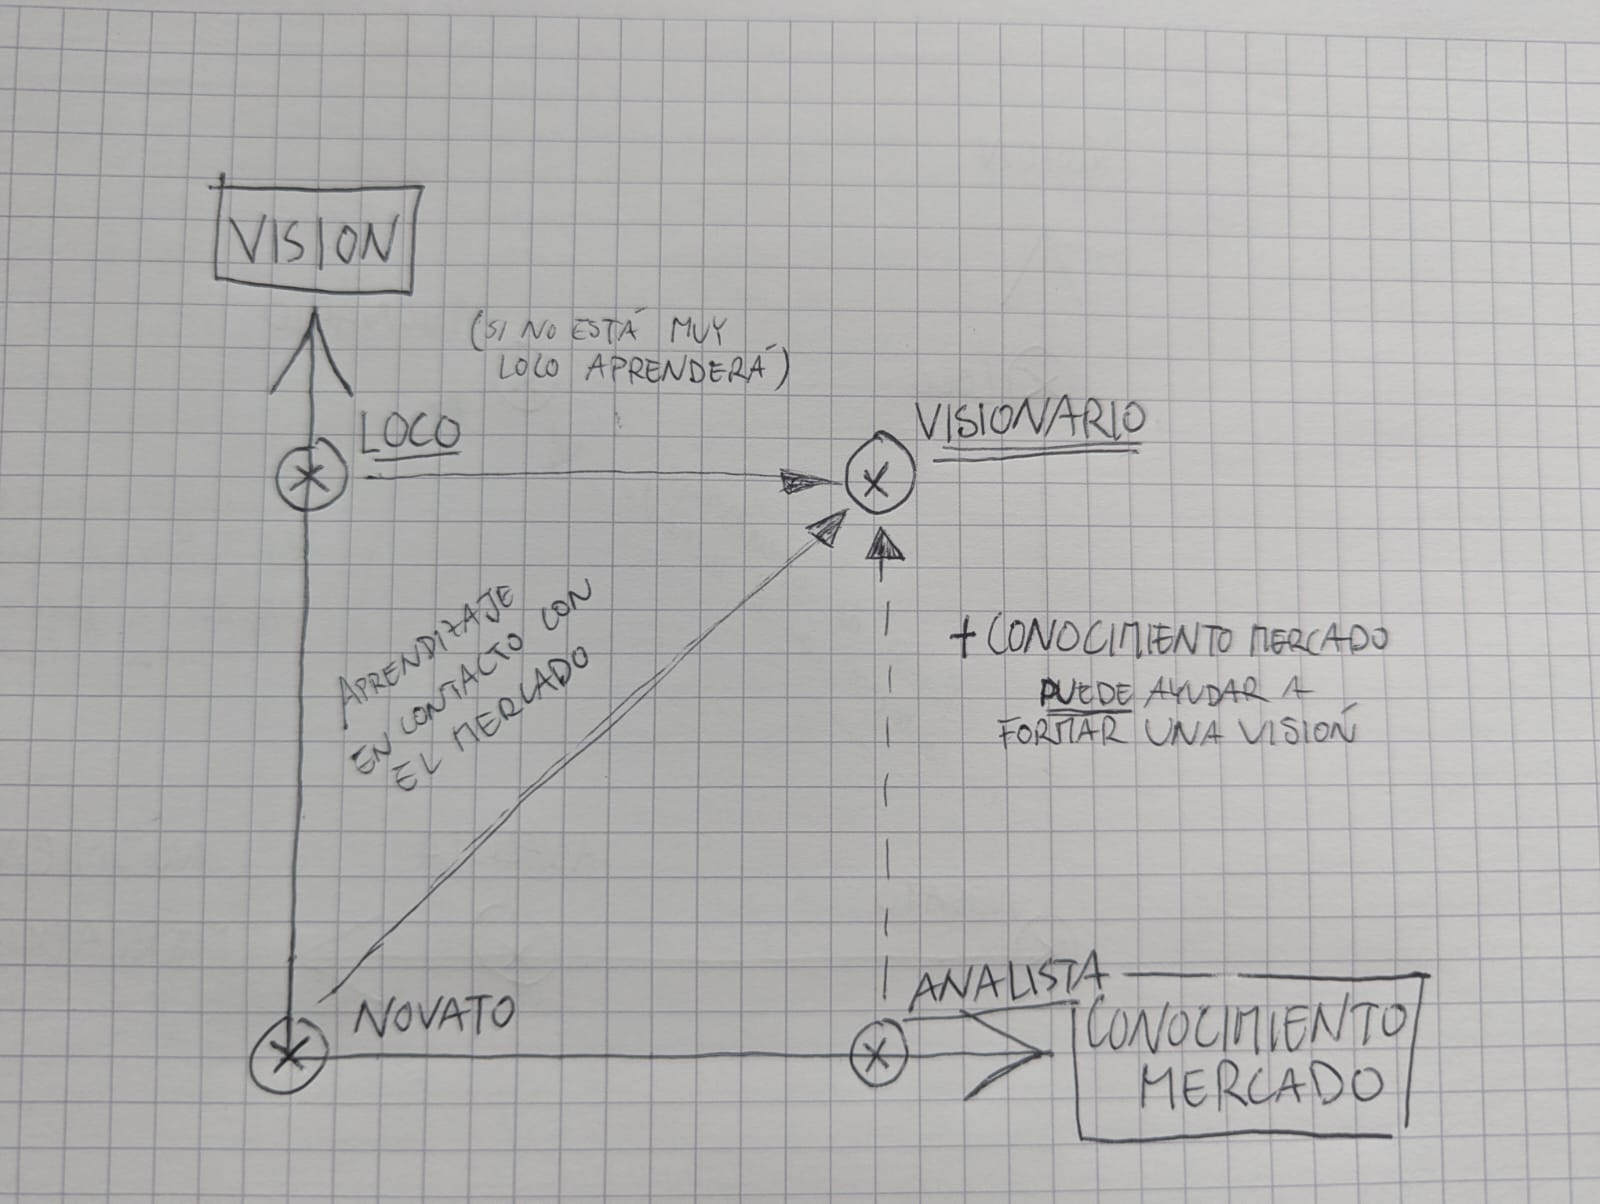 VISION
(SI NO ESTÁ MUY
LOCO APRENDERÁ)
LOCO
VISIONARIO
APRENDIZAJE
EN CONTACTO CON
EL MERCADO
+ CONOCIMIENTO MERCADO
PUEDE AYUDAR A
FORMAR UNA VISIÓN
NOVATO
ANALISTA
CONOCIMIENTO
MERCADO